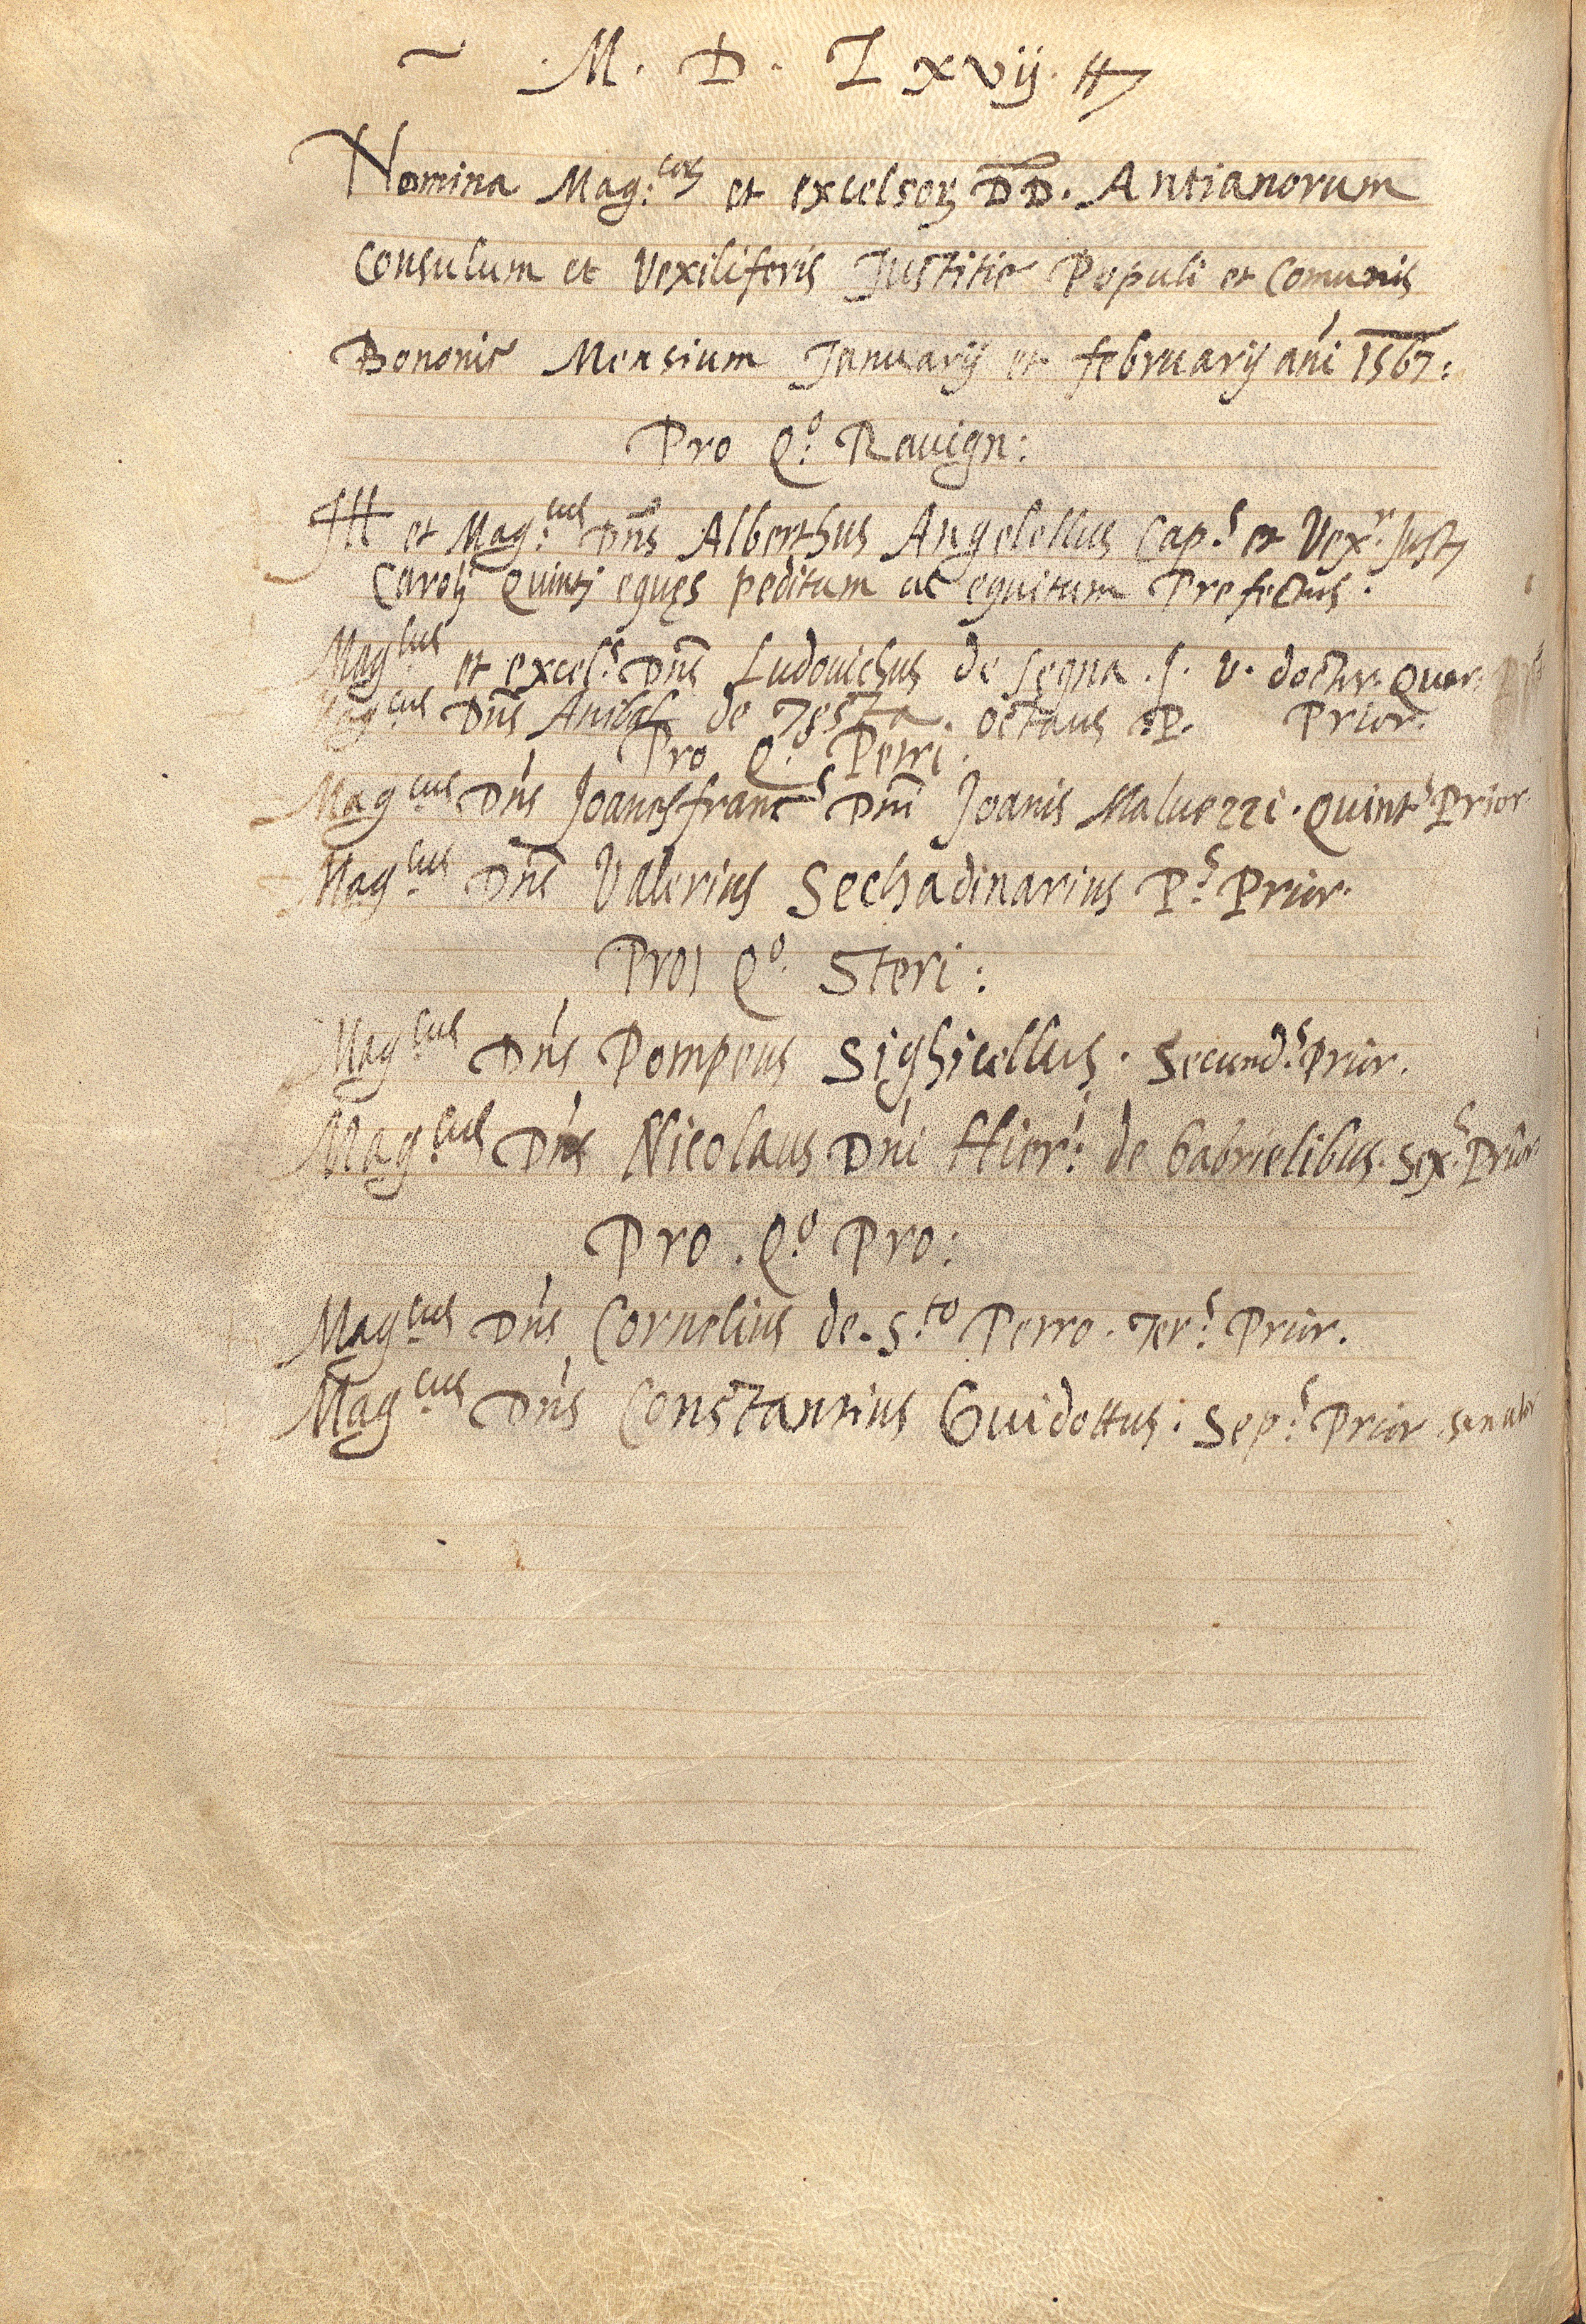 ~ .M. D. L xvij.
Nomina Mag:corz et excelsorz DD. Antianorum
Consulum et Vexiliferis Justitie Populi et Comunis
Bononie Mensium Januarij et februarij ani 1567:
Pro Q:o Rauign:
Ill et Mag:cus Dns Alberthus Angelellus Cap:s et Vex:r Just
Carolj Quintj eques peditum ac equitum Prefectus.
Mag:cus et excel:s Dns Ludouichus de segna . J. V. doctor. Quar:
Magcus Dns Anibal de Testa. octaus P. Prior.
Pro Q:o Petri.
Magcus Dns Joanesfranc:s Dni Joanis Maluezzi. Quint:s Prior.
Mag:cus Dns Valerius Sechadinarius P:s Prior.
Pro Q:o Steri:
Mag:cus Dns Pompeus Sighicellus. Secund:s Prior.
Mag:cus Dns Nicolaus Dni Hier:i de Gabrielibus. Sex:s Prior
Pro . Q:o Pro:
Mag:cus Dns Cornelius de. S:to Perro. Ter:s Prior.
Mag:cus Dns Constantius Guidottus. Sep:s Prior